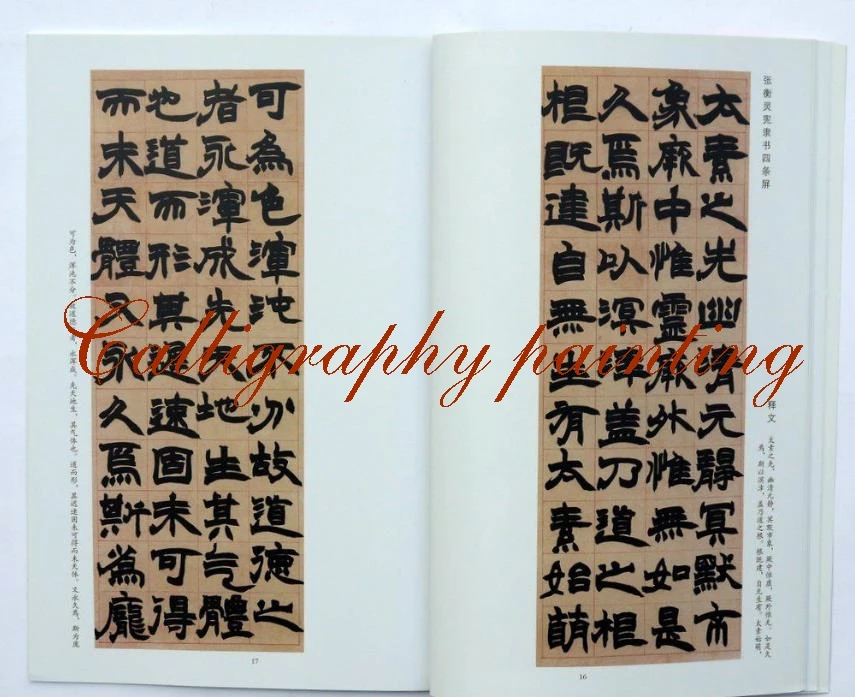 张衡灵宪隶书四条屏
太素之先幽清元靜冥默
象厥中惟靈厥外惟無如是
久焉斯以溟涬蓋乃道之根
根既建自無生有太素始萌
释文
太素之先，幽清元静，其默市象，厥中惟质，厥外惟无。如是久
焉，斯以溟涬，盖乃道之根。根既建，自无生有。太素始萌，
16
可為色渾沌不分故道德之
者永渾成先天地生其气體
也道而形其遲速固未可得
而未天體又永久焉斯爲龐
可为色，浑沌不分，故道德，永浑成。先天地生，其气体也。道而形，其迟速固未可得而未天体，又永久焉，斯为庞
17
Calligraphy painting